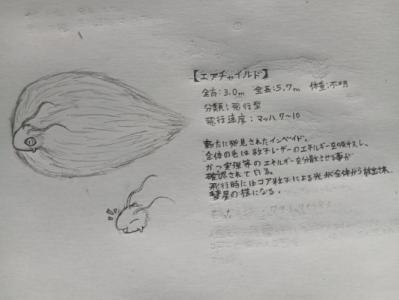 【エアチャイルド】
全高:3.0m 全長:5.7m 体重:不明
分類:飛行型
飛行速度:マッハ7〜10
新たに発見されたインベイド。
全体の毛は粒子レーザーのエネルギーを吸収し、
かつ実弾等のエネルギーを分散させる事が
確認されている。
飛行時にはコア粒子による光が全体から放出され、
彗星の様になる。